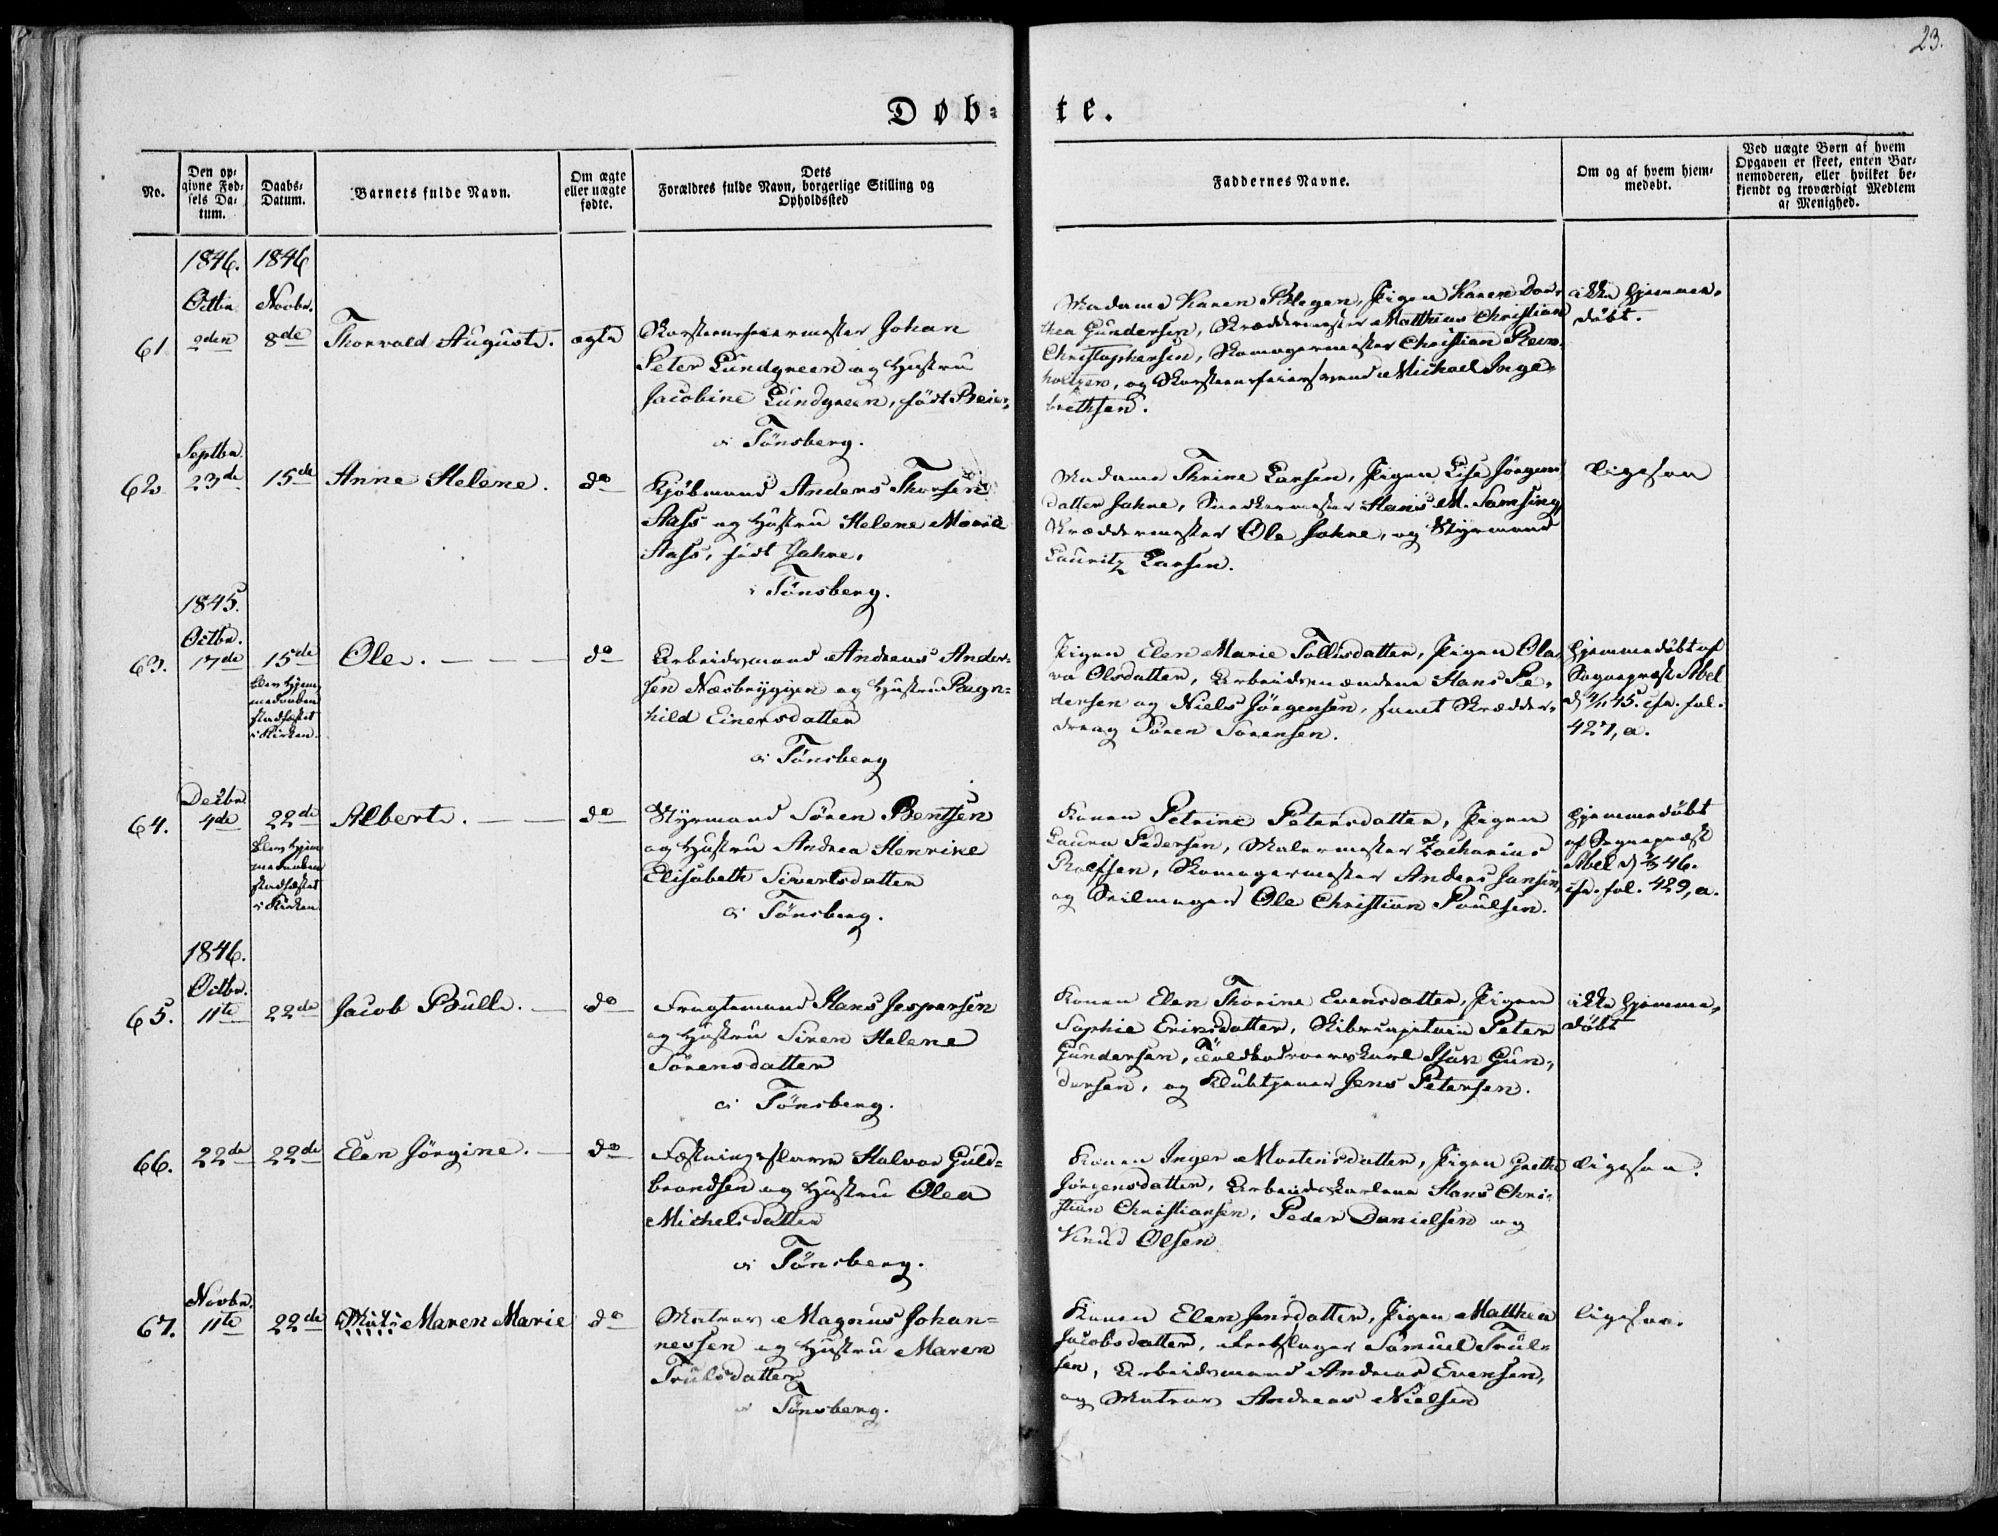 23.
Døb-
te.
No.
Den op-
givne Fød-
sels Da-
tum.
Daabs-
Datum.
Barnets fulde Navn.
Om ægte
eller uægte
fødte.
Dets
Forældres fulde Navn, borgerlige Stilling og
Opholdssted
Faddernes Navne.
Om og af hvem hjem-
medøbt.
Ved uægte Børn af hvem
Opgaven er skeet, enten Bar-
nemoderen, eller hvilket be-
kjendt og troværdigt Medlem
af Menighed.
1846. 1846
Octbr. Novbr.
61 2den 8de Thorvald August. ægte
Skorsteensfeiermester Johan
Peter Lundgreen og Hustru
Jacobine Lundgreen, født Beier,
i Tönsberg.
Madame Karen Pflegen, Pigen Karen Dor-
thea Gundersen, Skræddermester Matthias Christian
Christophersen, Skomagermester Christian Rein-
holtzen, og Skorsteensfeiersvend Michael Inge-
brethsen.
ikke hjemme-
døbt.
Septbr.
62 23de 15de Anne Helene. do
Kjöbmand Anders Thorsen
Aass og Hustru Helene Marie
Aass, født Jahre,
i Tönsberg.
Madame Thrine Larsen, Pigen Lise Jörgens
datter Jahre, Snedkermester Hans M. Samsing,
Skræddermester Ole Jahre, og Styrmand
Lauritz Larsen.
ligesaa
1845.
Octbr.
63. 17de 15de Ole. do
blev hjem-
medaaben
stadfæstet
i Kirken.
Arbeidsmand Andreas Ander-
sen Næsbryggen og Hustru Ragn-
hild Einersdatter
i Tönsberg
Pigen Elen Marie Tollisdatter, Pigen Ola-
va Olsdatter, Arbeidsmændene Hans Pe-
dersen og Niels Jörgensen, samt Skrædder-
dreng Sören Sörensen.
hjemmedøbt af
Sognepræst Abel
45. cfr. fol.
427, a.
Decbr
64. 4de 22de Albert. do
blev hjem-
medaaben
stadfæstet
i Kirken
Styrmand Sören Bentsen
og Hustru Andrea Henrike
Elisabeth Sivertsdatter
i Tönsberg.
Konen Petrine Petersdatter, Pigen
Laura Pedersen, Malermester Zacharias
Rolfsen, Skomagermester Anders Jansen,
og Seilmager Ole Christian Poulsen.
hjemmedøbt
af Sognepræst
Abel 46.
cfr. fol. 429, a.
1846.
Octbr.
65. 11te 22de Jacob Bull. do
Fragtemand Hans Jespersen
og Hustru Siren Helene
Sörensdatter
i Tönsberg.
Konen Elen Thorine Evensdatter, Pigen
Sophie Ericsdatter, Skibscapitain Peter
Gundersen, Toldbodroerskarl Isak Gun-
dersen, og Klubtjener Jens Petersen.
ikke hjemme-
døbt
66. 22de 22de Elen Jörgine. do
Fæstningsslave Halvor Guld-
brandsen og Hustru Olea
Michelsdatter
i Tönsberg.
Konen Inger Mortensdatter, Pigen Grethe
Jörgensdatter, Arbeidskarlene Hans Chri-
stian Christiansen, Peder Danielsen og
Knud Olsen
ligesaa.
Novbr.
67. 11te 22de Maren Marie do
Matros Magnus Johan-
nessen og Hustru Maren
Trulsdatter
i Tönsberg.
Konen Elen Jensdatter, Pigen Mathea
Jacobsdatter, Samuel Trul-
sen, Arbeidsmand Andreas Evensen,
og Matros Andreas Nielsen
ligesaa.